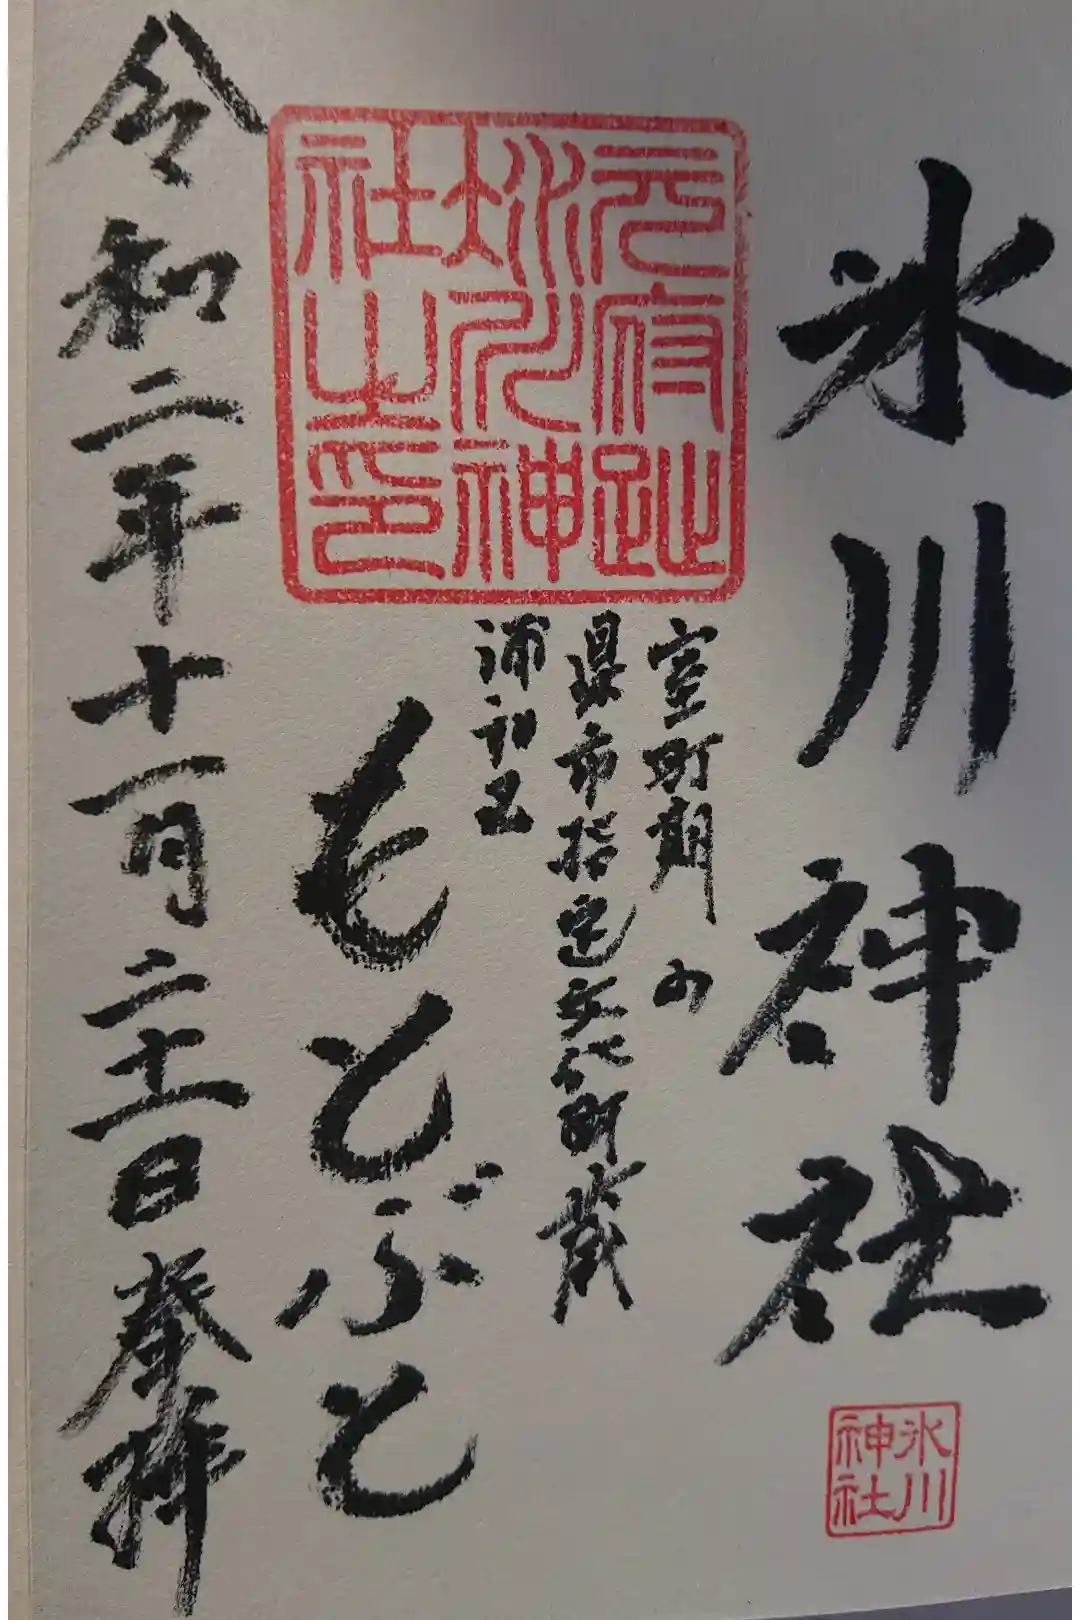 氷川神社
氷川神社
元府趾
氷川神
社之印
室町期の
県市指定文化財蔵
浦和区
もとぶと
令和二年十一月二十一日奉拝